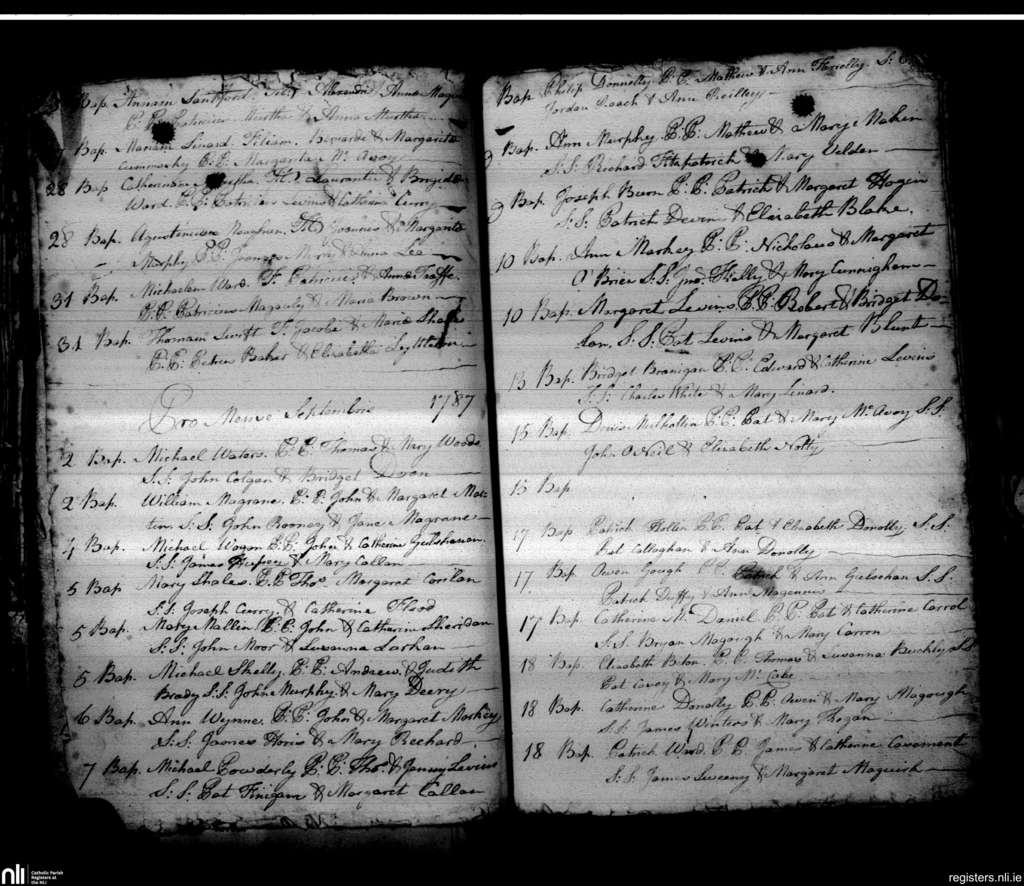 Bap. Annam Santford. Alexandri & Anna
& Anna Murtha
Bap. Mariam Linard. Filiam. Bernardi & Margarita
P.P. Margarita Mc Avoy
28 Bap Catherinam Laurenti & Brigida
Ward. P.P. Patricius Levins & Catharina Curry
28 Bap. Joannes & Margarita
Murphy P.P. & Anna Lea
31 Bap. Michaelem Ward. F. Patricii & Anna Taaffe.
P.P. Patricius Magauly & Maria Brown
31 Bap. Thomam Swift F. Jacobi & Maria
P.P. Petrus Baker & Elizabetha Lyttleton
Pro Mense Septembris 1787
2 Bap. Michael Waters. P.P. Thomas & Mary Woods
S.S. John Colgan & Bridget
2 Bap. William Magrane. P.P. John & Margaret Mar-
tin S:S: John Rooney & Jane Magrane
4 Bap. Michael Wogan P.P. John & Catherine
S.S. James & Mary Callan
5 Bap. Mary Shales. P.P. Thos. Margaret Conlan
S.S. Joseph Curry. & Catherine Flood
5 Bap. Mary Mallin P.P. John & Catherin Sheridan
S.S. John Moor & Susanna Larham
5 Bap. Michael Shelly. P.P. Andrew. & Judith
Brady S.S. John Murphy. & Mary Deery
6 Bap. Ann Wynne. P.P. John & Margaret Markey
S.S. James Horis & Mary Rechard
7 Bap. Michael Cowderly P.P. Thos. & Jenny Levins
S.S. Pat Finigan & Margaret Callan
Bap Philip Donnelly P.P. Mathew & Ann Farrelly. S.
Jordan Roach & Ann Reilley
9 Bap. Ann Murphey P.P. Mathew & Mary Maken
S.S. Richard Fitzpatrick & Mary Tilder
9 Bap Joseph Burn P.P. Patrick & Margaret Hogin
S.S. Patrick Deven & Elizabeth Blake.
10 Bap. Ann Markey P.P. Nicholaus & Margaret
O'Brien S.S. Jno. Kelly & Mary Cunnigham
10 Bap. Margaret Levins P.P. Robert & Bridget Do-
lan, S.S. Pat Levins & Margaret Blunt
13 Bap. Bridget Branigan P.P. Edward & Catherine Levins
S.S. Charles White & Mary Linard.
15 Bap. Denis Mulhallen P.P. Pat & Mary McAvoy S.S.
John O Neil & Elizabeth Notty
15 Bap
17 Bap. Patrick P.P. Pat & Elizabeth Donolly S.S.
Pat Callaghan & Ann Donolly
17 Bap Owen Gough P.P. Patrick & Ann Gaelochan S.S.
Patrick Duffy & Ann Magennis
17 Bap. Catherine Mc Daniel P.P. Pat & Catherine Carrol
S.S. Bryan Magough & Mary Carron
18 Bap. Elizabeth P.P. Thomas & Susanna Buckly S.S
Pat Cavey & Mary Mc Cabe
18 Bap. Catherine Donolly P.P. Owen & Mary Magough
S.S. James Winters & Mary Hogan
18 Bap. Patrick Ward. P.P. James & Catherine
S.S. James Sweeny & Margaret Maguirk
nli Catholic Parish
Registers at
the NLI
registers.nli.ie